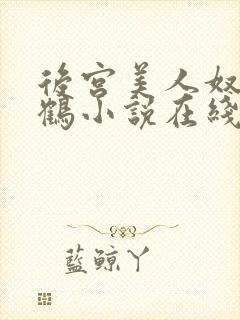 後宮美人奴
鶴小說在綫
藍鯨丫